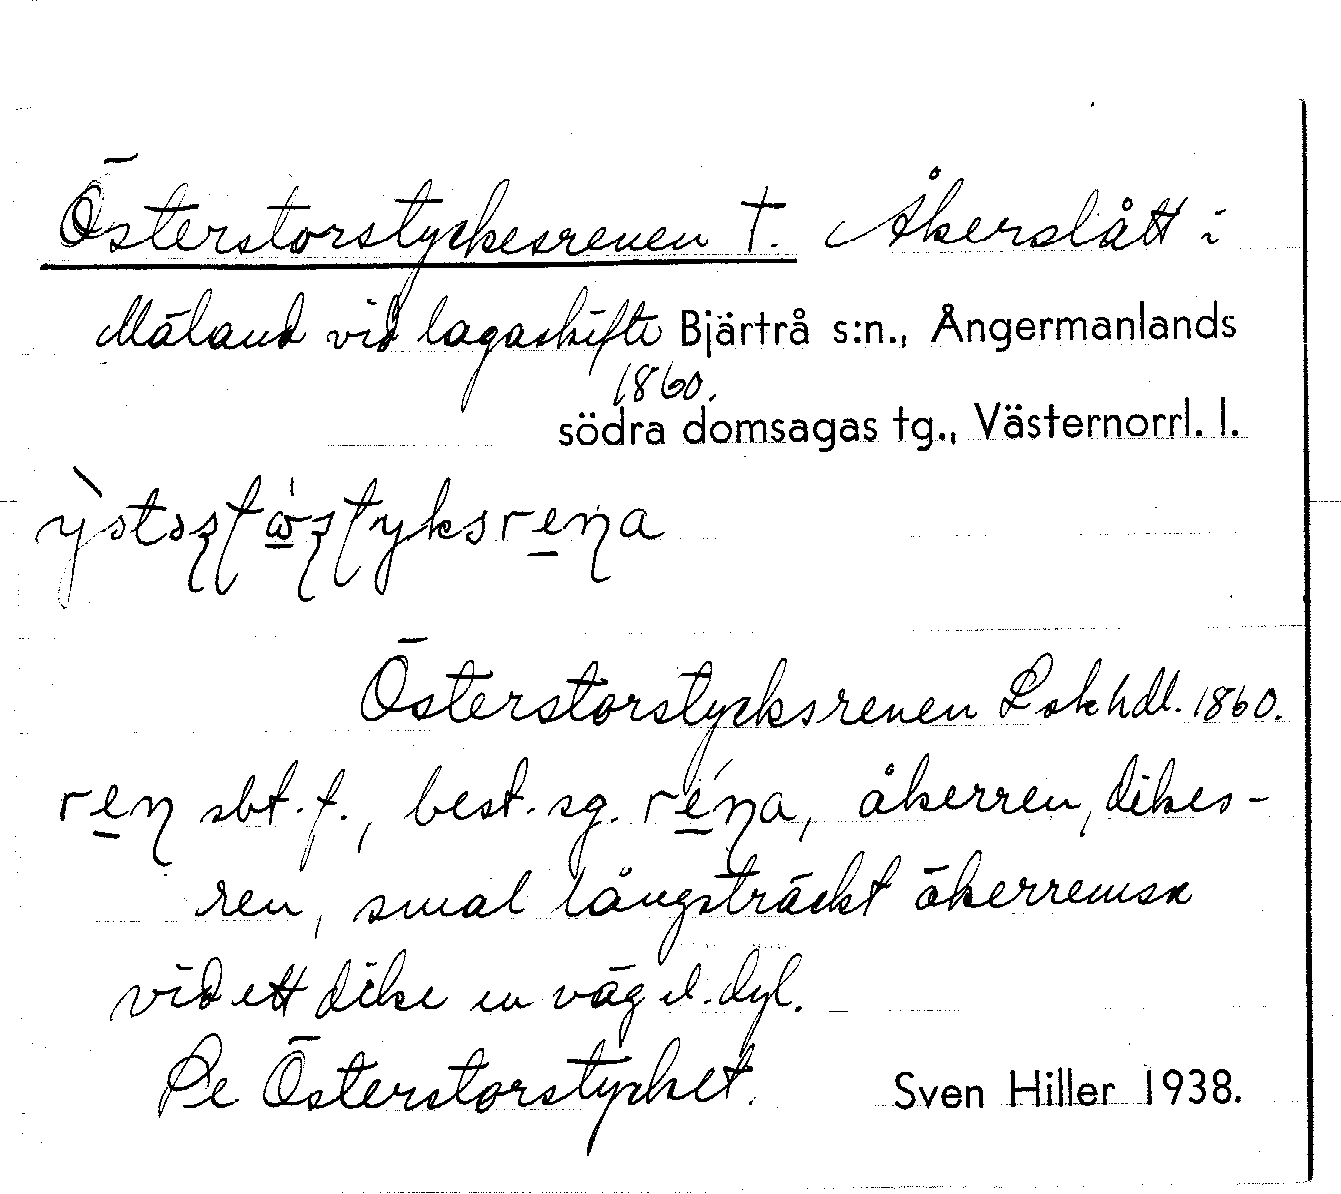 Österstorstyckesrenen †. Åkerslått i
Mäland vid lagaskifte Bjärtrå s:n., Ångermanlands
1860.
södra domsagas tg., Västernorrl. l.
Österstorstycksrenen Lskhdl. 1860.
sbt. f., best. sg. åkerren, dikes-
ren, smal långsträckt åkerremsa
vid ett dike en väg el. dyl.
Se Österstorstycket. Sven Hiller 1938.